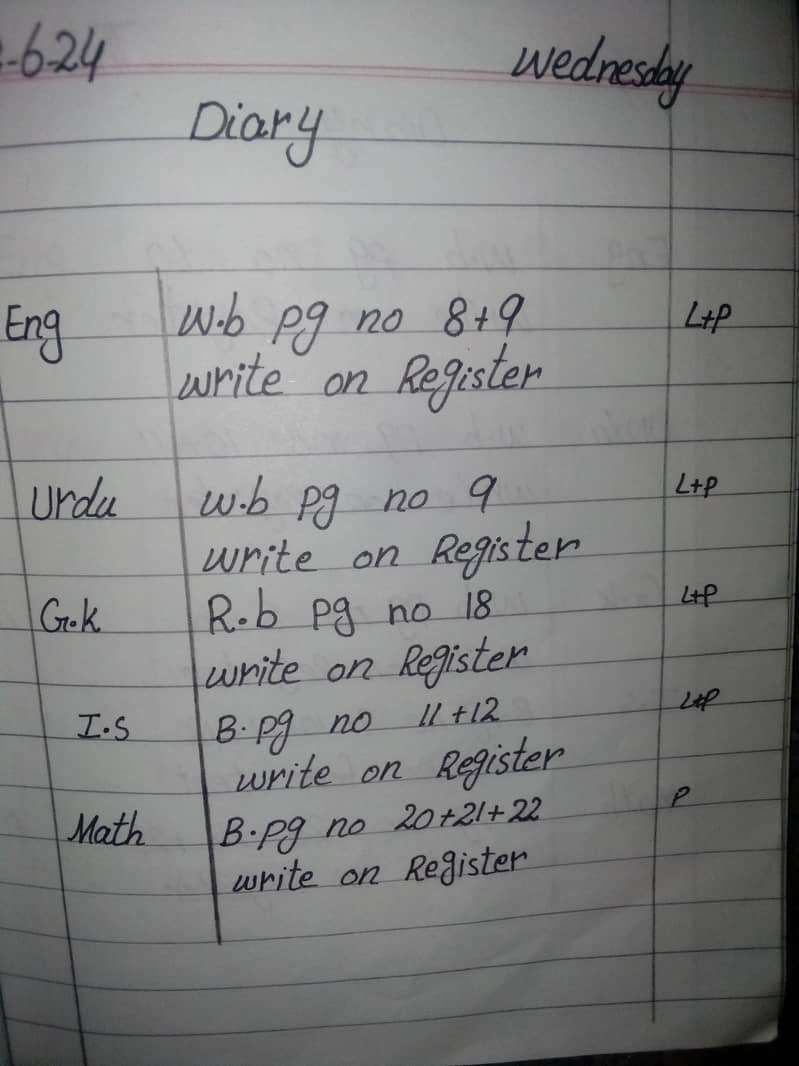 -6-24 Wednesday
Diary
Eng W.b pg no 8+9 L+P
write on Register
Urdu W.b pg no 9 L+P
write on Register
G.k R.b pg no 18 L+P
write on Register
I.S B.pg no 11+12 L+P
write on Register
Math B.pg no 20+21+22 P
write on Register